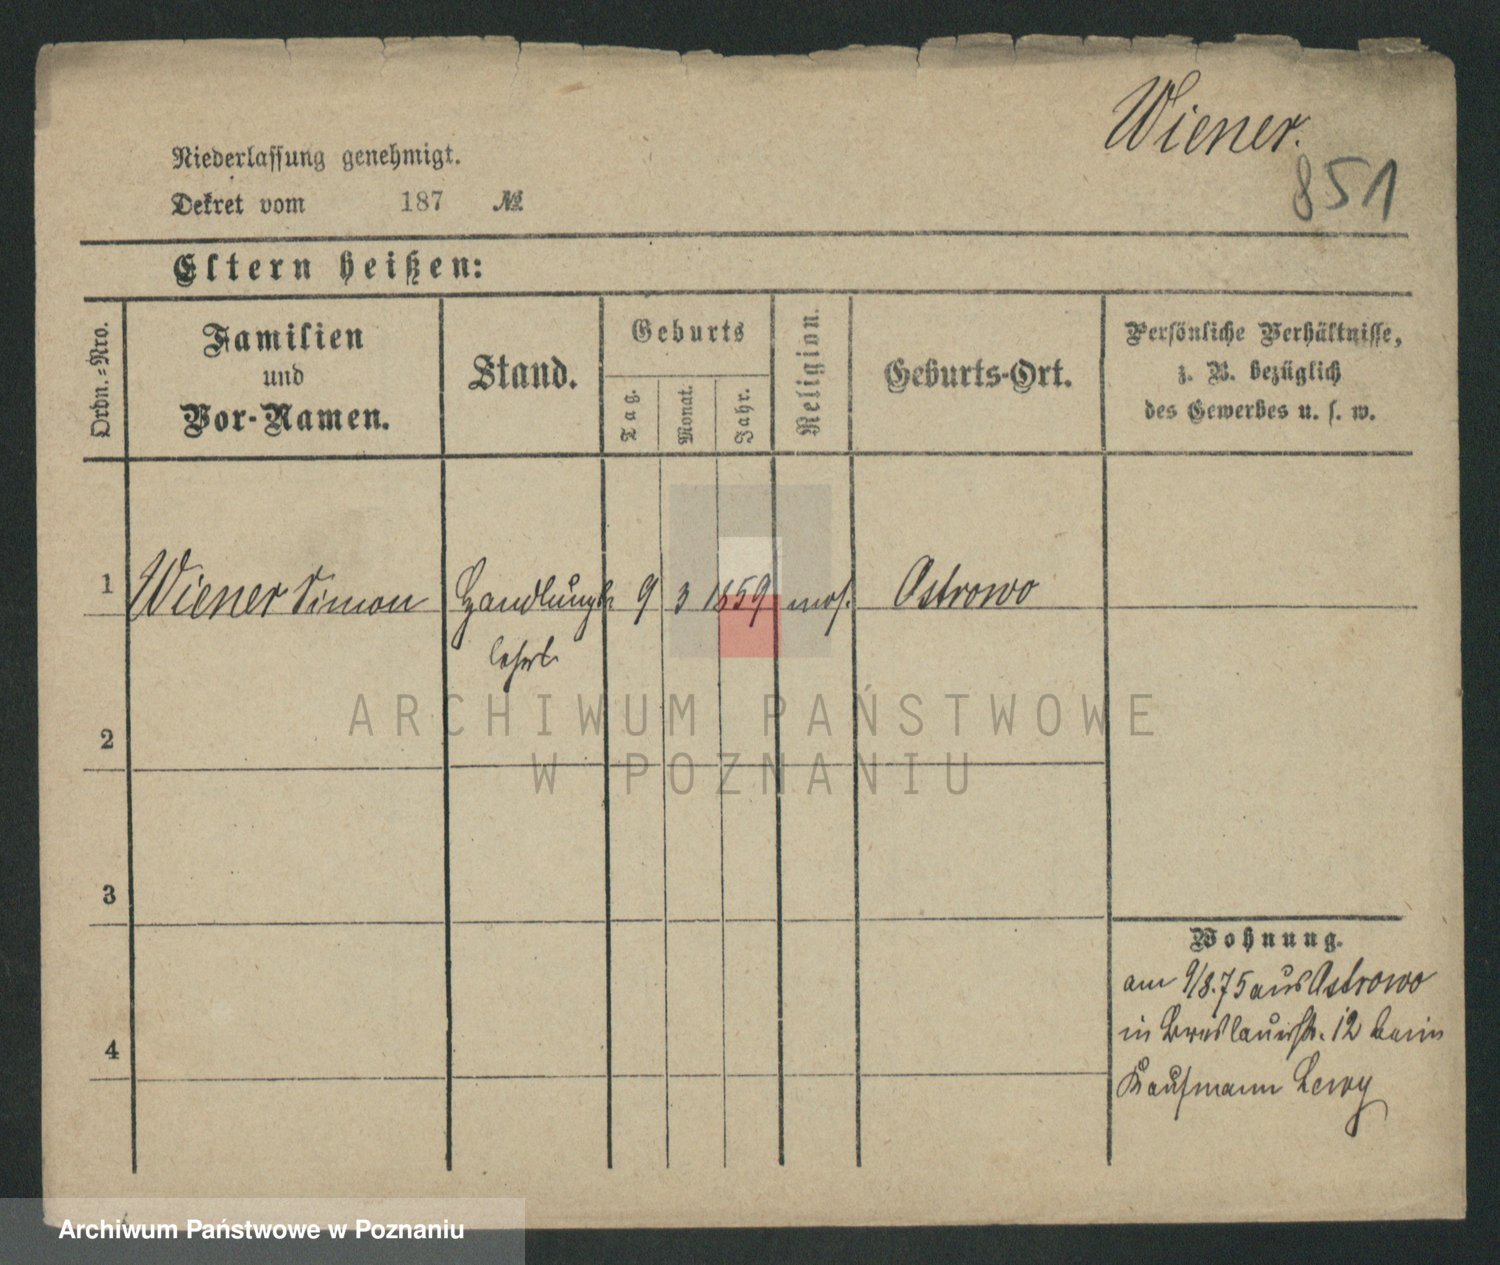 Wiener.
851
Niederlassung genehmigt.
Dekret vom 187 №
Eltern heißen:
Ordn.-Nro.
Familien
und
Vor-Namen.
Stand.
Geburts
Tag.
Monat.
Jahr.
Religion.
Geburts-Ort.
Persönliche Verhältnisse,
z. B. bezüglich
des Gewerbes u. s. w.
1 Wiener Simon Handlungs 9 3 1859 mos. Ostrowo
lehrl.
ARCHIWUM PAŃSTWOWE
W POZNANIU
2
3
4
Wohnung.
am 9/8.75 aus Ostrowo
in Breslauerstr. 12 beim
Kaufmann Lewy
Archiwum Państwowe w Poznaniu